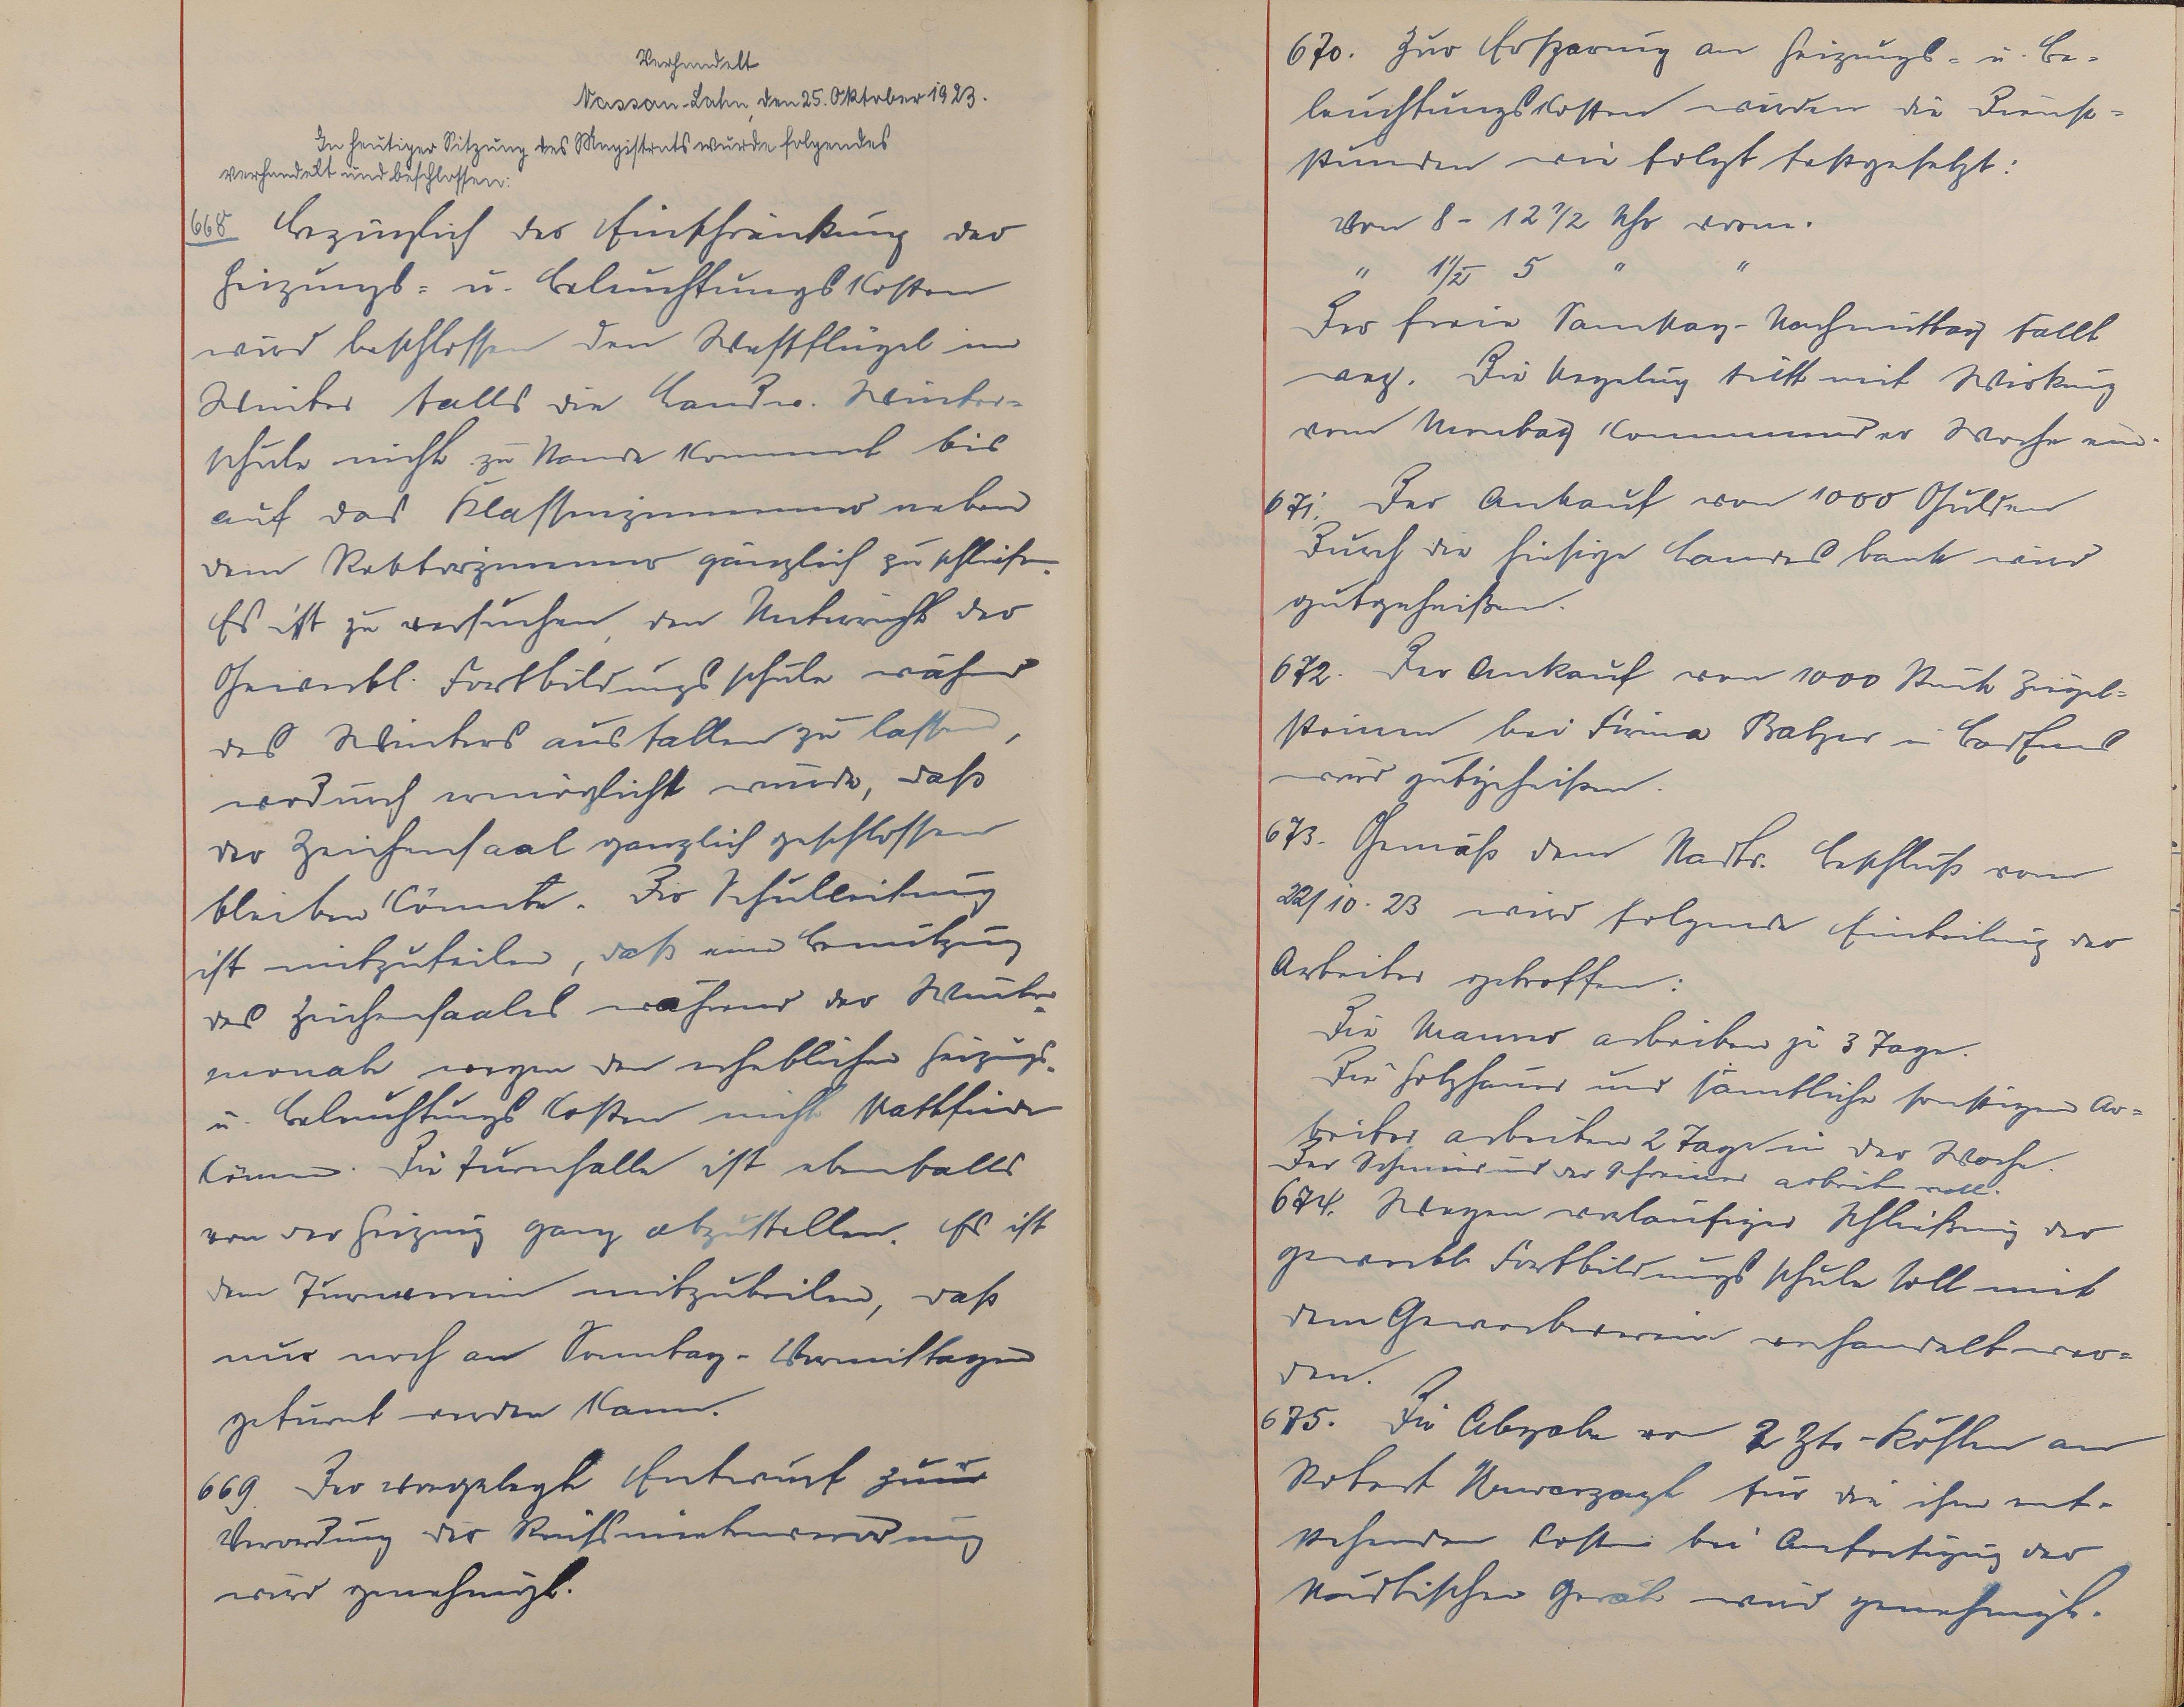 Verhandelt
Nassau-Lahn, den 25. Oktober 1923.
In heutiger Sitzung des Magistrats wurde folgendes
verhandelt und beschlossen:
668 Bezüglich der Einschränkung der
Heizungs= u. Beleuchtungskosten
wird beschlossen den Westflügel im
Winter falls die Landw. Winter=
schule nicht zu Stande kommt bis
auf das Klassenzimmer neben
dem Rektorzimmer gänzlich zu schließen.
Es ist zu versuchen, den Unterricht der
Gewerbl. Fortbildungsschule während
des Winters ausfallen zu lassen,
wodurch ermöglicht würde, daß
der Zeichensaal gänzlich geschlossen
bleiben könnte. Die Schulleitung
ist mitzuteilen, daß eine Benützung
des Zeichensaales während der Winter=
monate wegen den erheblichen Heizungs=
u. Beleuchtungskosten nicht stattfinden
könne. Die Turnhalle ist ebenfalls
von der Heizung ganz abzustellen. Es ist
dem Turnverein mitzuteilen, daß
nur noch an Sonntag-Vormittagen
geturnt werden kann.
669. Der vorgelegte Entwurf zur
Verordnung der Reichsmietenverordnung
wird genehmigt.
670. Zur Ersparung an Heizungs= u. Be=
leuchtungskosten wurden die Dienst=
stunden wie folgt festgesetzt:
Von 8 - 12 1/2 Uhr vorm.
" 1 1/2 5 " "
Der freie Samstag-Nachmittag fällt
weg. Die Regelung tritt mit Wirkung
vom Montag kommender Woche ein.
671. Der Ankauf von 1000 Gulden
durch die hiesige Landesbank wird
gutgeheißen.
672. Der Ankauf von 1000 Stück Ziegel=
steinen bei Firma Balzer in
wird gutgeheißen.
673. Gemäß dem Stadtv. Beschluß vom
22/10. 23 wird folgende Einteilung der
Arbeiter getroffen:
Die Maurer arbeiten je 3 Tage.
Die Holzhauer und sämtliche sonstigen Ar=
beiter arbeiten 2 Tage in der Woche.
Der Schmied und der Schreiner arbeiten voll.
674. Wegen vorläufiger Schließung der
gewerbl. Fortbildungsschule soll mit
dem Gewerbeverein verhandelt wer=
den.
675. Die Abgabe von 2 Ztr. Kohlen an
Robert Unverzagt für die ihm ent=
stehenden Kosten bei Anfertigung der
städtischen Geräte wird genehmigt.